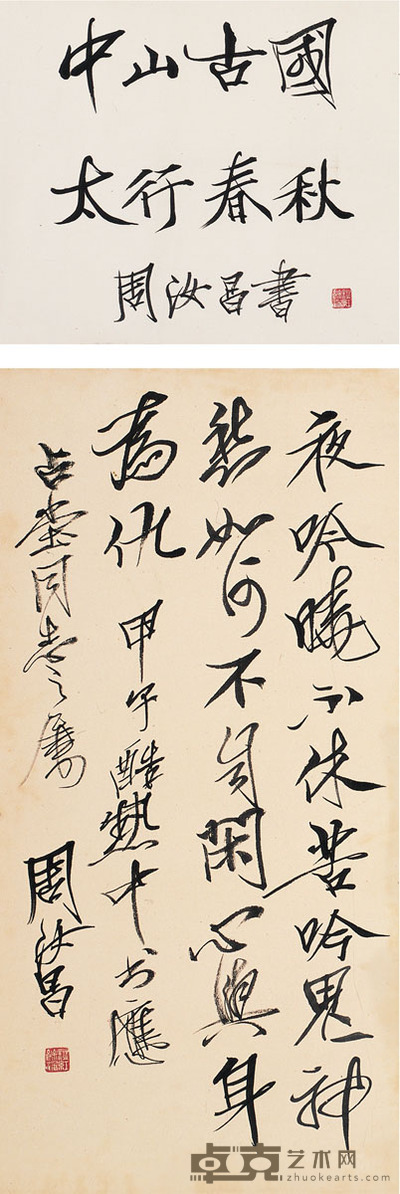 中山古國
太行春秋
周汝昌書
夜吟曉不休苦吟鬼神
愁如何不自閑心與身
為仇 甲子酷熱中書應
占同志之屬
周汝昌
卓克艺术网
www.zhuokearts.com